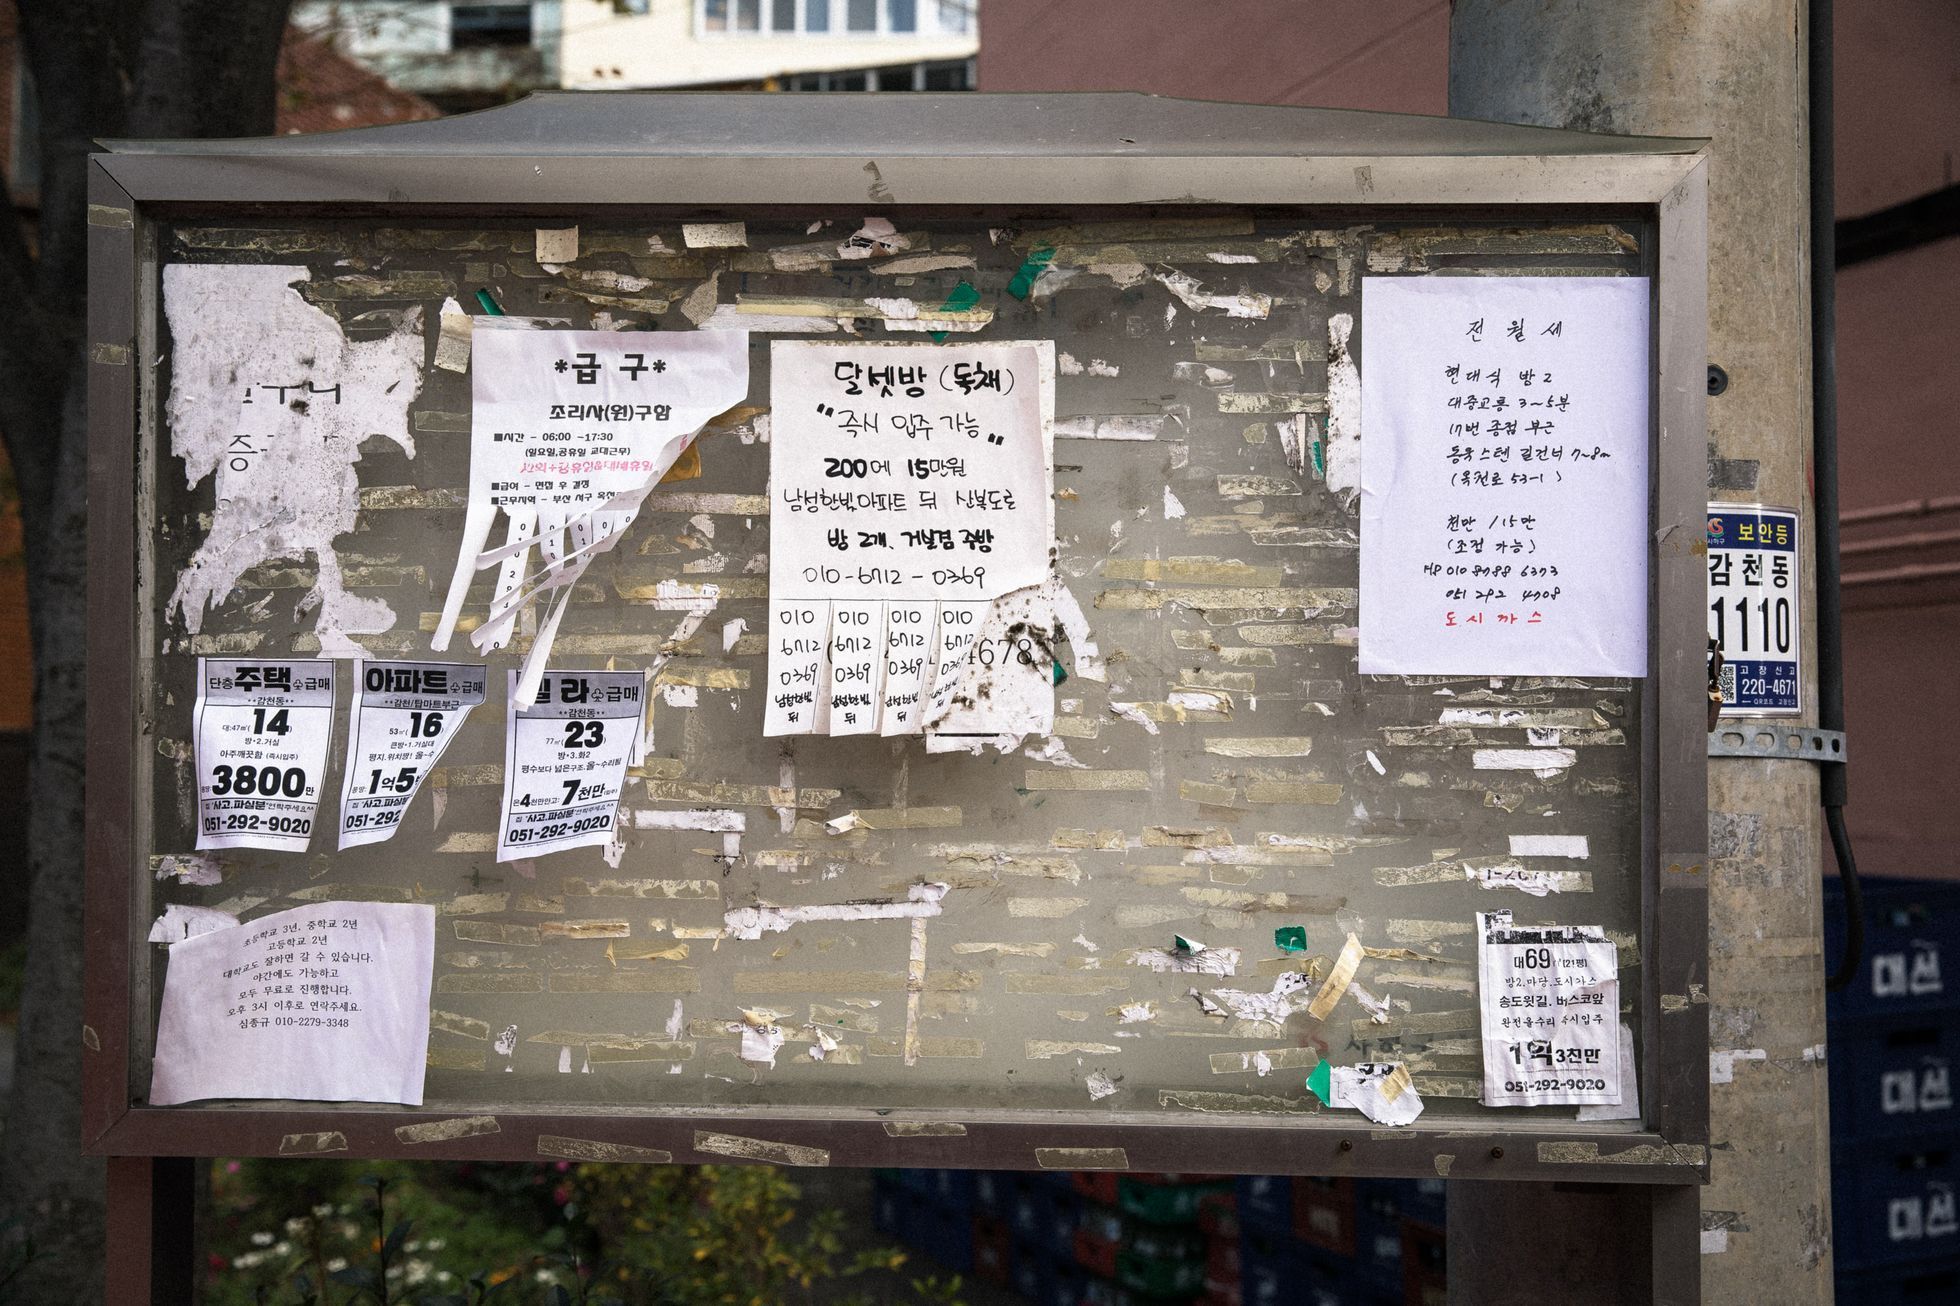 증
*급 구*
조리사(원)구함
■시간 - 06:00 ~17:30
(일요일,공휴일 교대근무)
■급여 - 면접 후 결정
■근무지역 - 부산 서구
달셋방 (독채)
"즉시 입주 가능"
200에 15만원
남성한빛아파트 뒤 산복도로
방 2개. 거실겸 주방
010-6712-0369
010 6712 0369 남성한빛 뒤
010 6712 0369 남성한빛 뒤
010 6712 0369 남성한빛 뒤
010 6712 036
4678
전 월 세
현대식 방 2
대중교통 3~5분
17번 종점 부근
동국스텐 길건너 7~8m
(옥천로 53-1 )
천만 /15만
(조정 가능)
HP 010 8988 6373
051 292 4708
도시까스
단층 주택 급매
**감천동**
대:47㎡ (14
방•2.거실
아주깨끗함 (즉시입주)
3800만
집 '사고.파실분'연락주세요^^
051-292-9020
아파트 급매
**감천/탑마트부근
53㎡ (16
큰방•1.거실대
평지.위치짱! 올~수
1억5
집 '사고.파실
051-292
빌 라 급매
**감천동**
77㎡ (23
방•3.화2
평수보다 넓은구조.올~수리됨
은4천만안고: 7천만
집 '사고.파실분'연락주세요^^
051-292-9020
초등학교 3년. 중학교 2년
고등학교 2년
대학교도 잘하면 갈 수 있습니다.
야간에도 가능하고
모두 무료로 진행합니다.
오후 3시 이후로 연락주세요.
심종규 010-2279-3348
대69㎡(21평)
방2.마당.도시가스
송도윗길. 버스코앞
완전올수리 즉시입주
1억3천만
051-292-9020
보안등
감천동
1110
고장신고
220-4671
대선
대선
대선